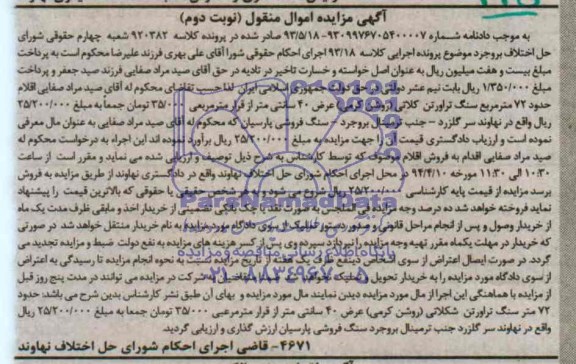 آگهی مزایده اموال منقول (نوبت دوم)
به موجب دادنامه شماره ۹۳۰۹۹۷۶۷۰۵۴۰۰۰۰۷-۹۳/۵/۱۸ صادر شده در پرونده کلاسه ۹۲۰۳۸۲ شعبه چهارم حقوقی شورای
حل اختلاف بروجرد موضوع پرونده اجرایی کلاسه ۹۳/۱۸ اجرای احکام حقوقی شورا آقای علی بهری فرزند علیرضا محکوم است به پرداخت
مبلغ بیست و هفت میلیون ریال به عنوان اصل خواسته و خسارت تاخیر در تادیه در حق آقای صید مراد صفایی فرزند صید جعفر و پرداخت
مبلغ ۱/۳۵۰/۰۰۰ ریال بابت نیم عشر دولتی در حق دولت جمهوری اسلامی ایران لذا حسب تقاضای محکوم له آقای صید مراد صفایی اقلام
حدود ۷۲ مترمربع سنگ تراورتن کلاتی (روشن کرمی) عرض ۴۰ سانتی متر از قرار مترمربعی ۳۵۰/۰۰۰ تومان جمعاً به مبلغ ۲۵/۲۰۰/۰۰۰
ریال واقع در نهاوند سر گلزرد - جنب ترمینال بروجرد - سنگ فروشی پارسیان که محکوم له آقای صید مراد صفایی به عنوان مال معرفی
نموده است و ارزیاب دادگستری قیمت آن را جهت مزایده به مبلغ ۲۵/۲۰۰/۰۰۰ ریال برآورد نموده اند این اجراء به درخواست محکوم له
صید مراد صفایی اقدام به فروش اقلام موصوف که توسط کارشناس به شرح ذیل توصیف و ارزیابی شده می نماید و مقرر است از ساعت
۱۰:۳۰ الی ۱۱:۳۰ مورخه ۹۴/۴/۱۰ در محل اجرای احکام شورای حل اختلاف نهاوند واقع در دادگستری نهاوند از طریق مزایده به فروش
برسد مزایده از قیمت پایه کارشناسی ۲۵/۲۰۰/۰۰۰ ریال شروع می شود و به هر شخص حقیقی یا حقوقی که بالاترین قیمت را پیشنهاد
نماید فروخته خواهد شد ده درصد وجه مزایده فی المجلس به صورت نقد یا چک بانکی تضمینی از خریدار اخذ و مابقی ظرف مدت یک ماه
از خریدار وصول و پس از انجام مراحل قانونی و صدور دستور تملیک از سوی دادگاه مورد مزایده به نام خریدار منتقل خواهد شد. در صورتی
که خریدار در مهلت یکماه مقرر تهیه وجه مزایده را نپردازد سپرده وی پس از کسر هزینه های مزایده به نفع دولت ضبط و مزایده تجدید می
گردد. در صورت ایصال اعتراض از سوی اشخاص ذینفع ظرف یک هفته از تاریخ مزایده نسبت به نحوه انجام مزایده تا رسیدگی به اعتراض
از سوی دادگاه مورد مزایده را به خریدار تحویل و تملیک نخواهد شد ضمناً متقاضیان شرکت در مزایده می توانند در مدت پنج روز قبل
از مزایده با هماهنگی این اجرا از مال مورد مزایده دیدن نمایند مال مورد مزایده و بهای آن طبق نظر کارشناس بدین شرح می باشد: حدود
۷۲ متر سنگ تراورتن شکلاتی (روشن کرمی) عرض ۴۰ سانتی متر از قرار مترمربعی ۳۵/۰۰۰ تومان جمعا به مبلغ ۲۵/۲۰۰/۰۰۰ ریال
واقع در نهاوند سر گلزرد جنب ترمینال بروجرد سنگ فروشی پارسیان ارزش گذاری و ارزیابی گردید.
۴۶۷۱- قاضی اجرای احکام شورای حل اختلاف نهاوند
ParsNamadData
پایگاه اطلاع رسانی مناقصه و مزایده
۰۲۱-۸۸۳۴۹۶۷۰-۵